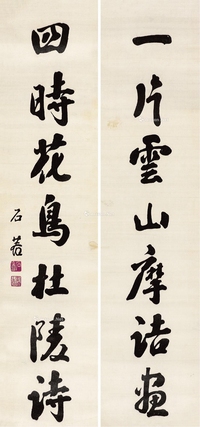 一片雲山摩詰畫
四時花鳥杜陵詩
石菴